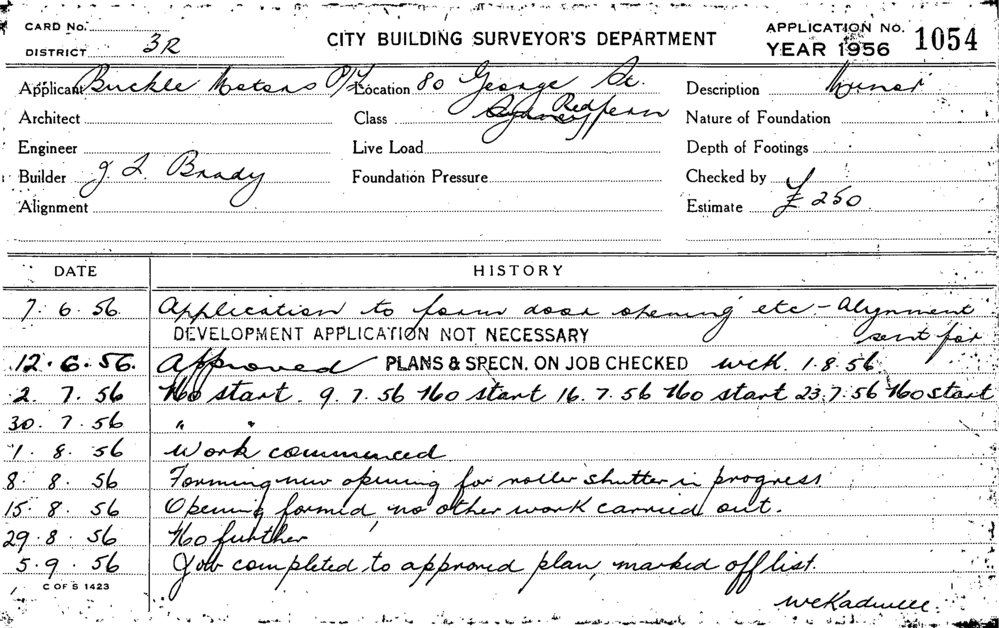 CARD No.
DISTRICT 3R
CITY BUILDING SURVEYOR'S DEPARTMENT
APPLICATION No. 1054
YEAR 1956
Applicant Buckle Motors P/L Location 80 George St. Description Minor
Redfern
Architect Class Sydney Nature of Foundation
Engineer Live Load Depth of Footings
Builder J. L. Brady Foundation Pressure Checked by
Alignment Estimate £ 250
DATE HISTORY
7. 6. 56 Application to form door opening etc - Alynment
sent for
DEVELOPMENT APPLICATION NOT NECESSARY
12. 6. 56. Approved PLANS & SPECN. ON JOB CHECKED WCK. 1.8.56
2. 7. 56 No start. 9. 7. 56 No start 16. 7. 56 No start 23.7.56 No start
30. 7. 56 " "
1. 8. 56 Work commenced
8. 8. 56 Forming new opening for roller shutter in progress
15. 8. 56 Opening formed, no other work carried out.
29. 8. 56 No further
5. 9. 56 Job completed, to approved plan, marked off list.
C OF S 1423
WCKadwell.